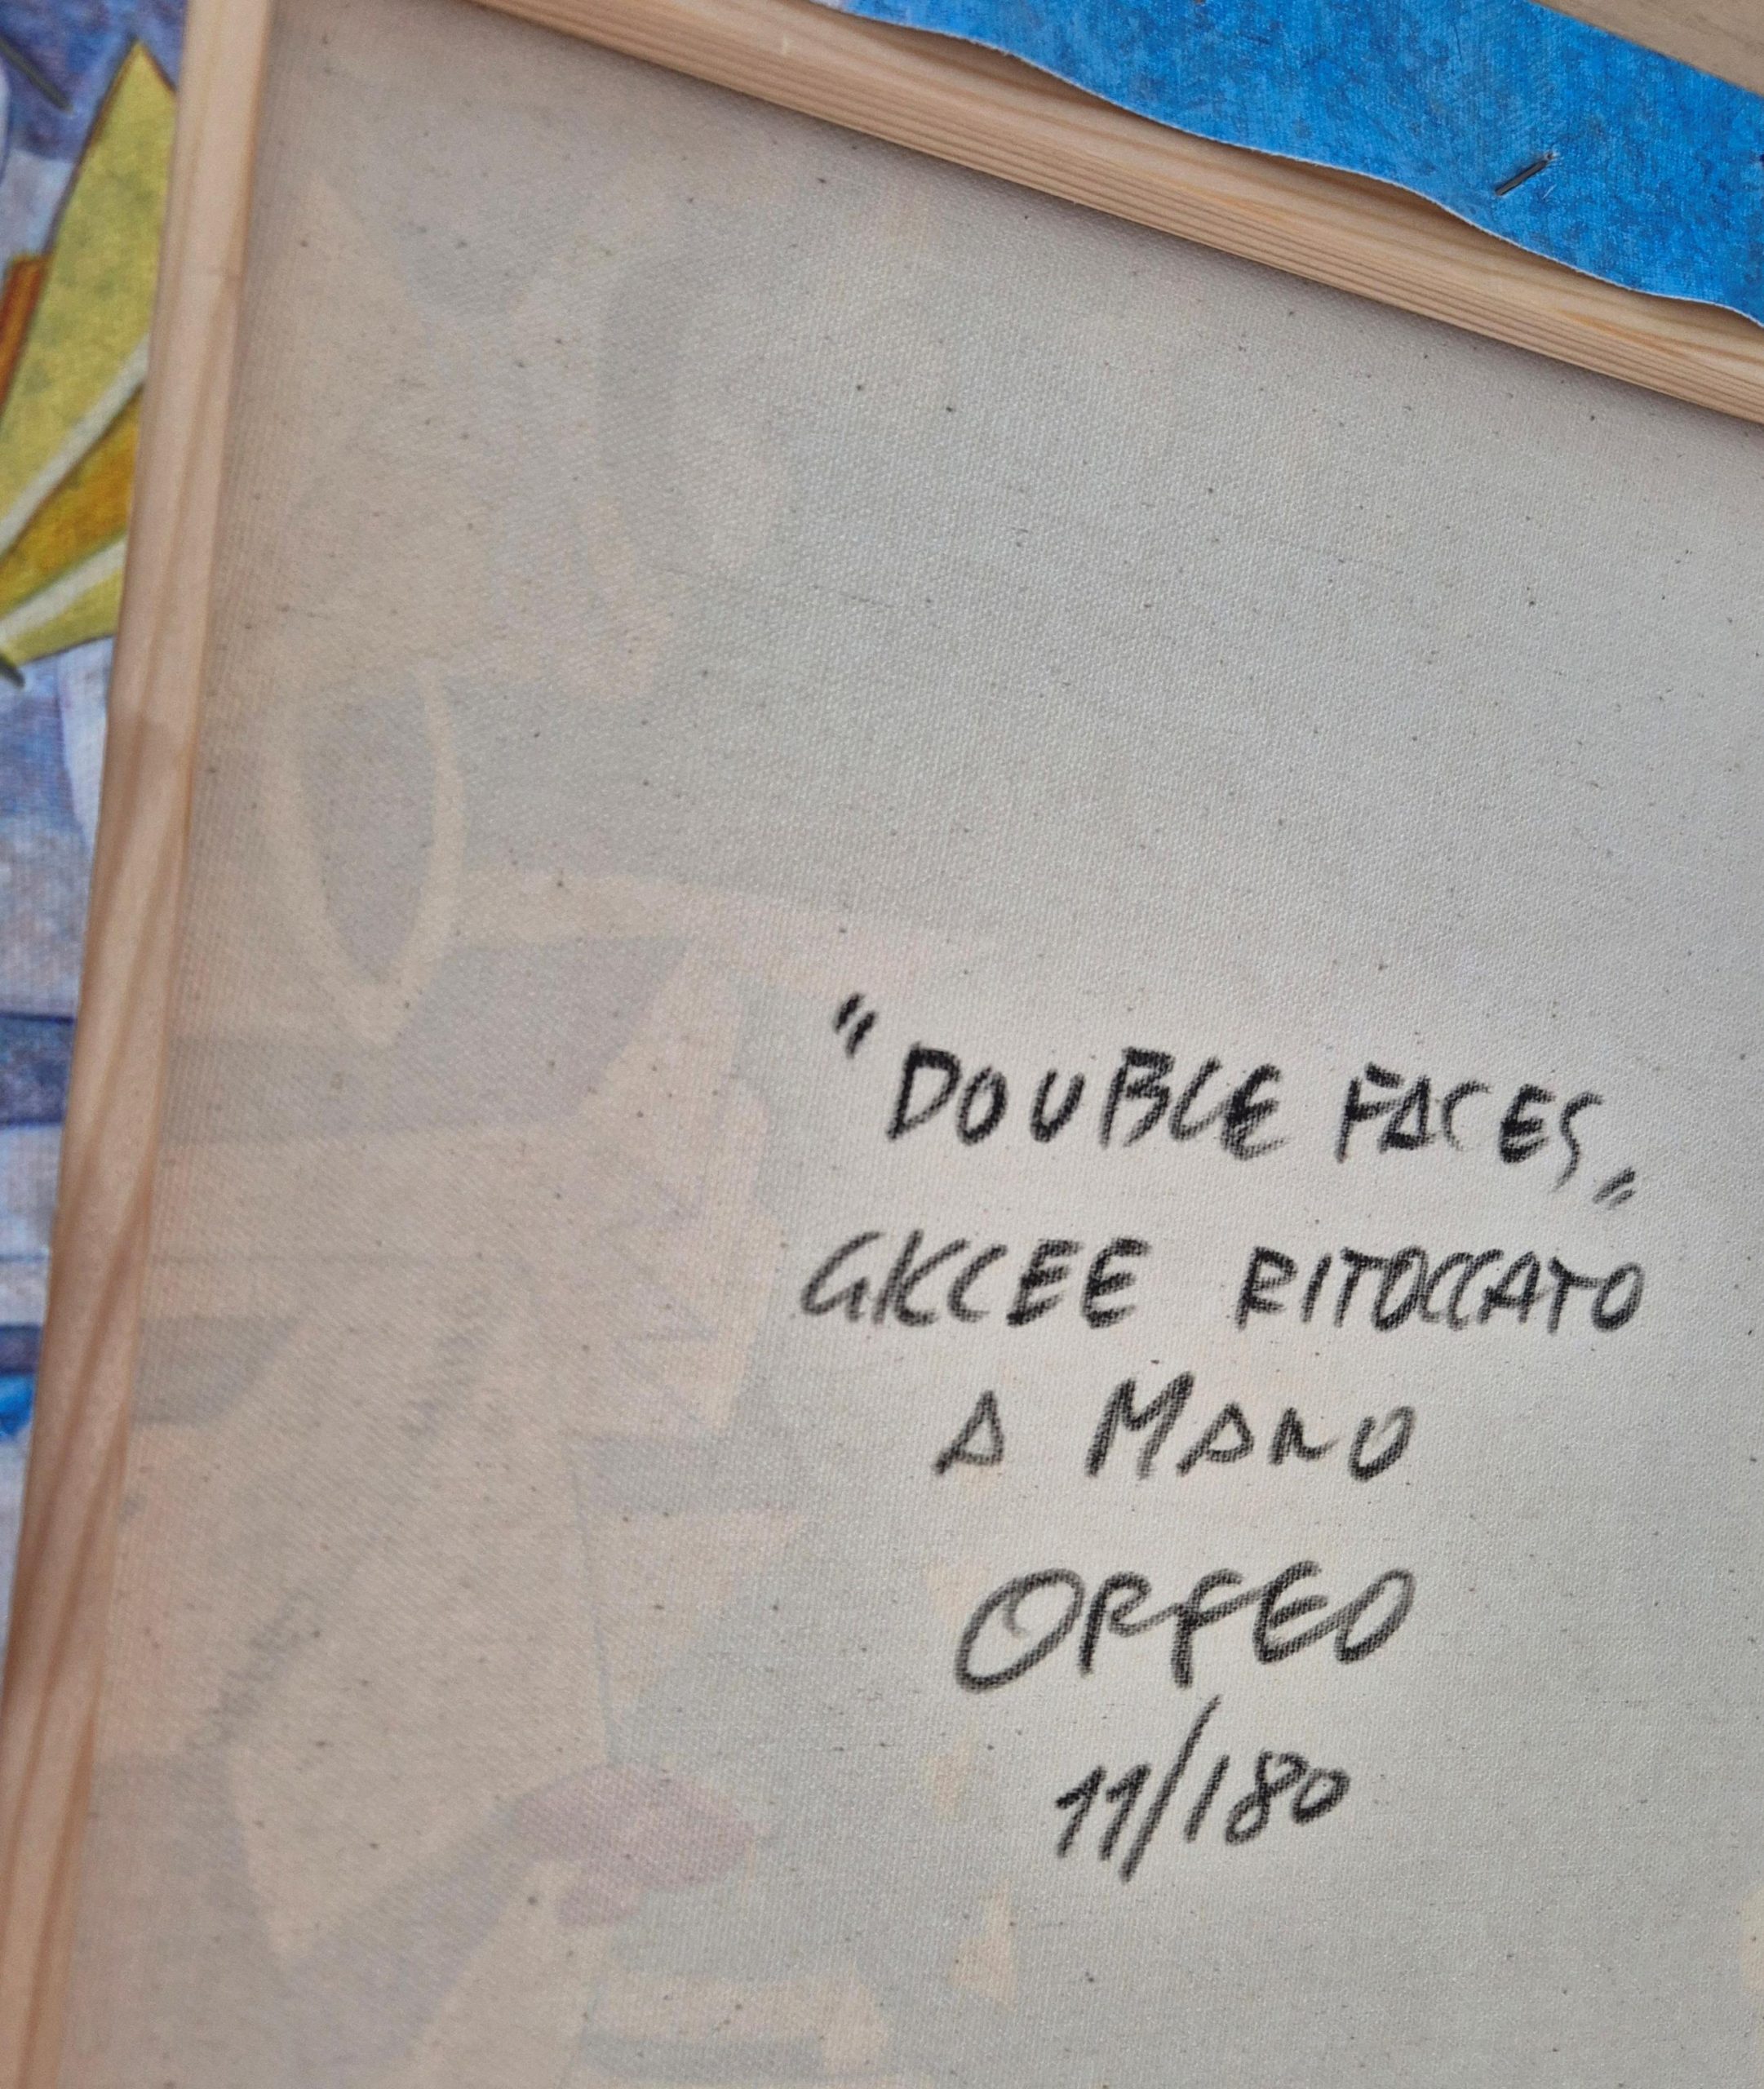 "DOUBLE FACES„
GICLEE RITOCCATO
A MANO
ORFEO
11/180